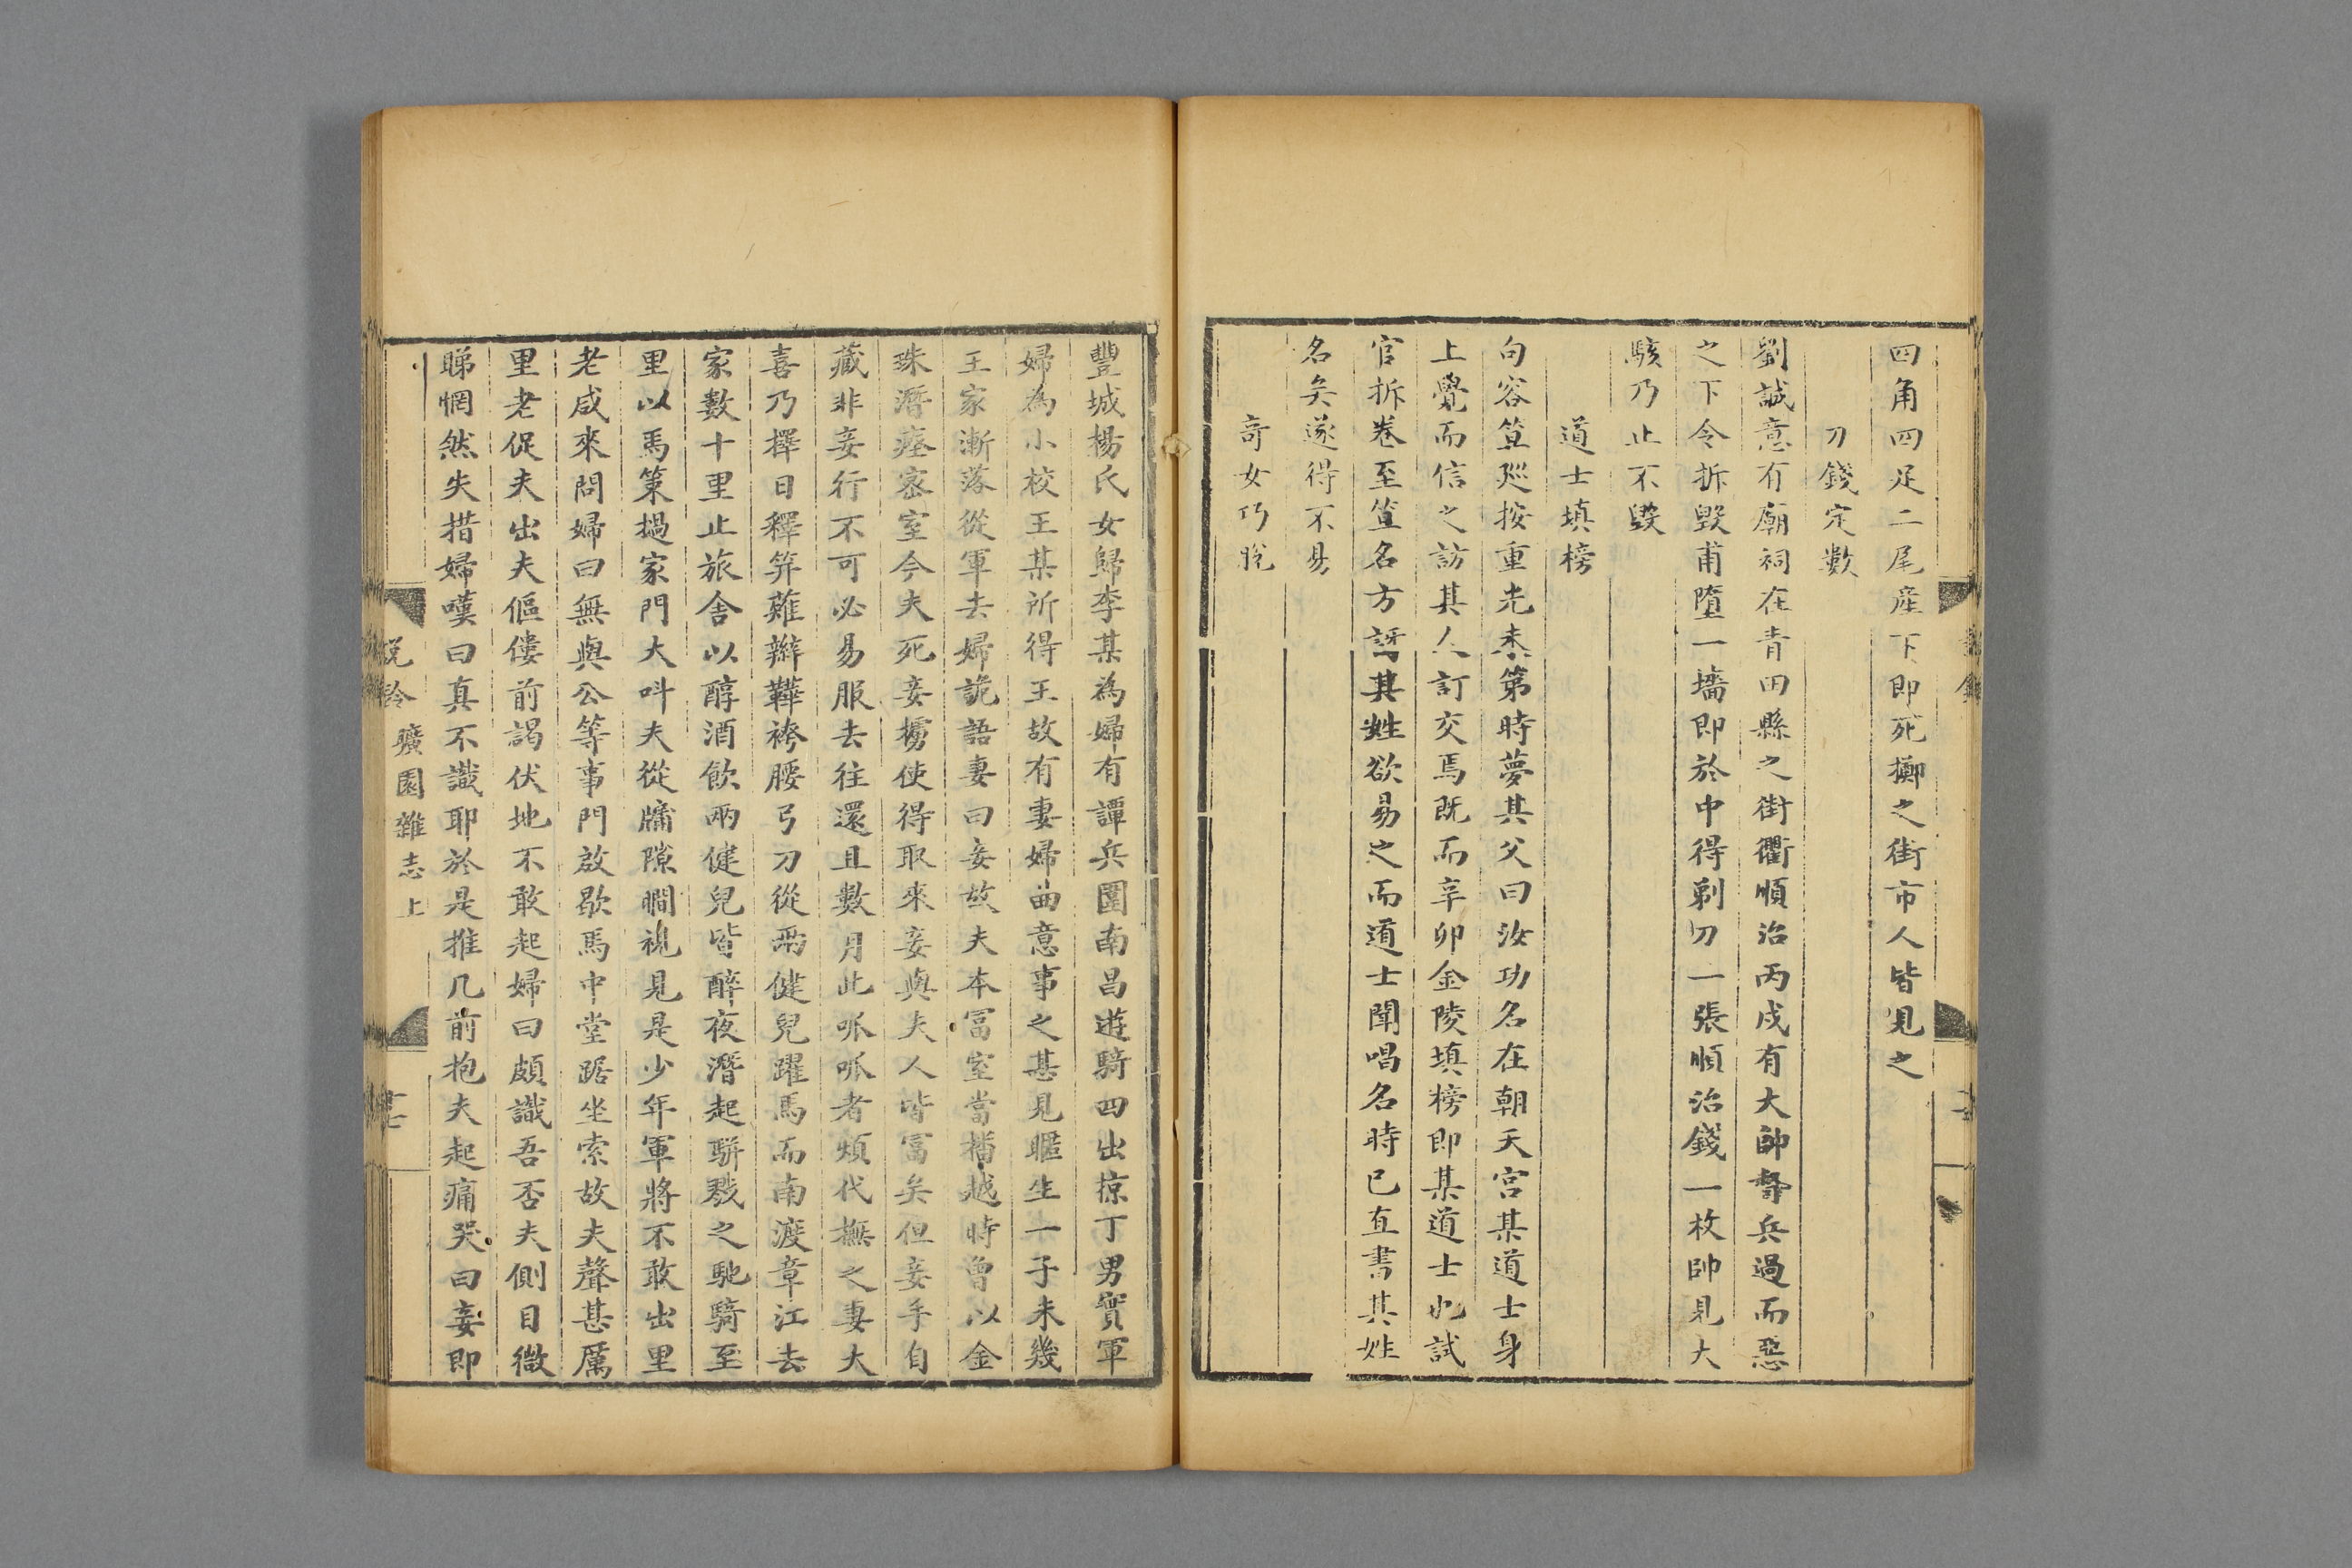 四角四足二尾産下即死擲之街市人皆見之
刀錢定數
劉誠意有廟祠在青田縣之街衢順治丙戌有大帥督兵過而惡
之下令拆毀甫墮一墻即於中得剃刀一張順治錢一枚帥見大
駭乃止不毀
道士填榜
句容笪廵按重光未第時夢其父曰汝功名在朝天宮某道士身
上覺而信之訪其人訂交焉既而辛卯金陵填榜即某道士也試
官拆卷至笪名方訝其姓欲易之而道士聞唱名時已直書其姓
名矣遂得不易
奇女巧脫
豐城楊氏女歸李某為婦有譚兵圍南昌遊騎四出掠丁男實軍
婦為小校王某所得王故有妻婦曲意事之甚見暱生一子未幾
王家漸落從軍去婦詭語妻曰妾故夫本冨室當播越時曾以金
珠潛瘞宻室今夫死妾擄使得取來妾與夫人皆冨矣但妾手自
藏非妾行不可必易服去往還且數月此呱呱者煩代撫之妻大
喜乃擇日釋笄薙辮鞾袴腰弓刀從兩健兒躍馬而南渡章江去
家數十里止旅舍以醇酒飲兩健兒皆醉夜潛起騈戮之馳騎至
里以馬策撾家門大呌夫從牖隙瞷視見是少年軍將不敢出里
老咸來問婦曰無與公等事門啟歇馬中堂踞坐索故夫聲甚厲
里老促夫出夫傴僂前謁伏地不敢起婦曰頗識吾否夫側目微
睇惘然失措婦嘆曰真不識耶於是推几前抱夫起痛哭曰妾即
說鈴
曠園雜志上